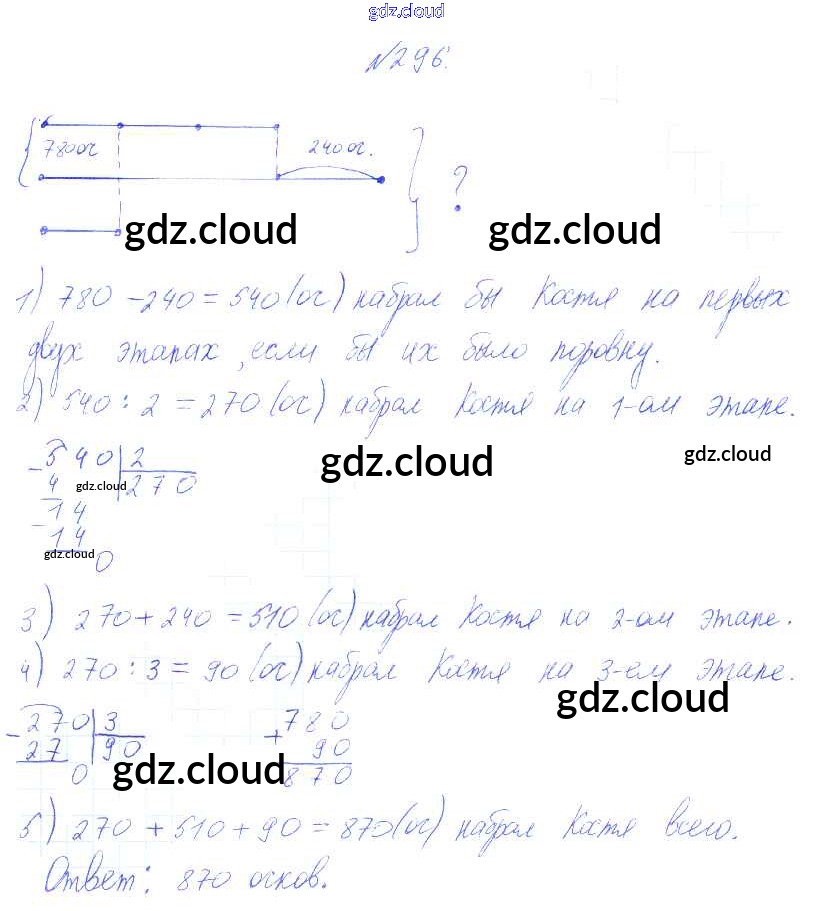 gdz.cloud
№296.
780 ог 240 ог. ?
gdz.cloud gdz.cloud
1) 780 - 240 = 540 (ог) набрал бы Костя на первых
двух этапах, если бы их было поровну.
2) 540 : 2 = 270 (ог) набрал Костя на 1-ом этапе.
- 540 | 2
gdz.cloud gdz.cloud
4 gdz.cloud 270
- 14
14
gdz.cloud 0
3) 270 + 240 = 510 (ог) набрал Костя на 2-ом этапе.
4) 270 : 3 = 90 (ог) набрал Костя на 3-ем этапе.
gdz.cloud
- 270 | 3 + 780
27 90 90
0 gdz.cloud 870
5) 270 + 510 + 90 = 870 (ог) набрал Костя всего.
Ответ: 870 очков.